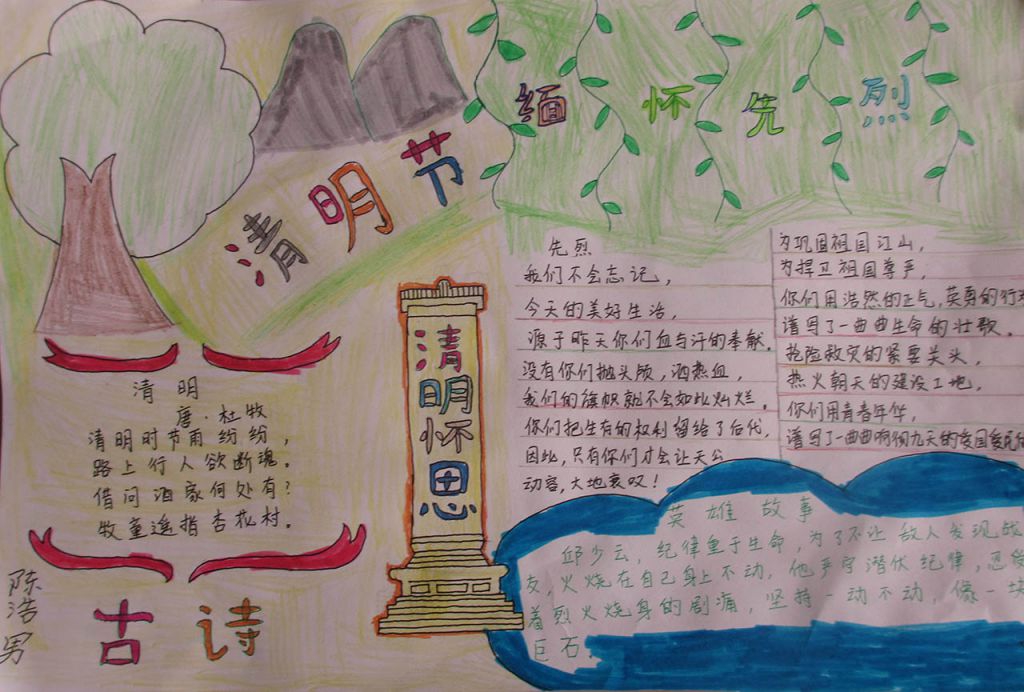 清明节
缅怀先烈
清明
唐·杜牧
清明时节雨纷纷，
路上行人欲断魂。
借问酒家何处有？
牧童遥指杏花村。
古诗
陈浩男
清明怀思
先烈
我们不会忘记，
今天的美好生活，
源于昨天你们血与汗的奉献。
没有你们抛头颅，洒热血，
我们的旗帜就不会如此灿烂。
你们把生有的权利留给了后代，
因此，只有你们才会让天公
动容，大地哀叹！
为巩固祖国江山，
为捍卫祖国尊严，
你们用浩然的正气，英勇的行
谱写了一曲曲生命的壮歌。
抢险救灾的紧要关头，
热火朝天的建设工地，
你们用青春年华，
谱写了一曲曲响彻九天的爱国爱民
英雄故事
邱少云，纪律重于生命，为了不让敌人发现战
友，火烧在自己身上不动，他严守潜伏纪律，忍受
着烈火烧身的剧痛，坚持一动不动，像一块
巨石。